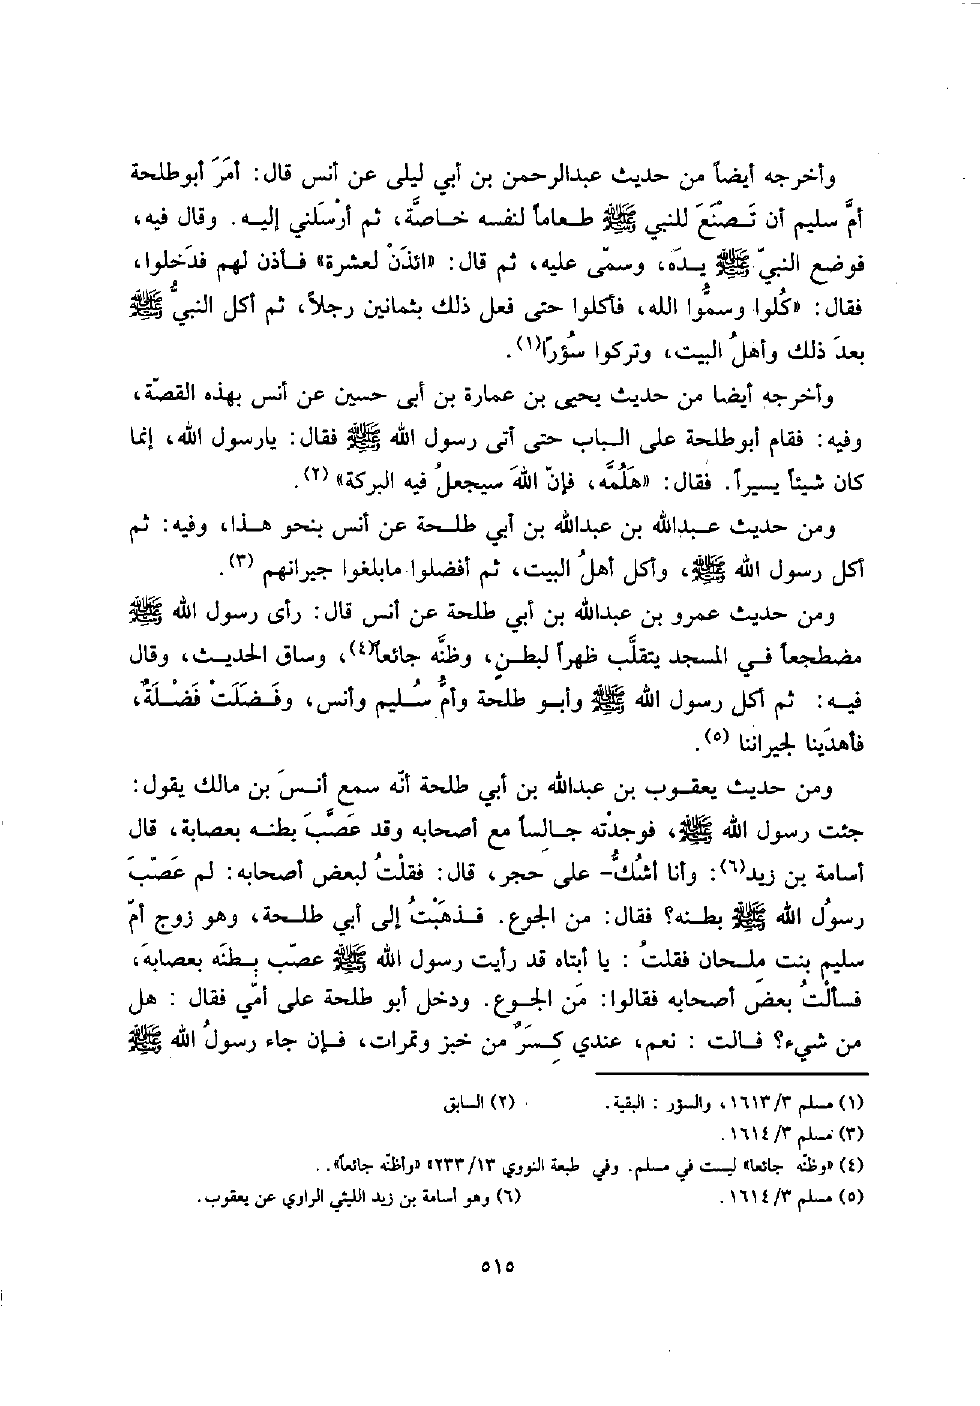 وأخرجه أيضاً من حديث عبدالرحمن بن أبي ليلى عن أنس قال: أمَرَ أبوطلحة
أمَّ سليم أن تَصْنَعَ للنبي ﷺ طعاماً لنفسه خاصَّة، ثم أرْسَلَني إليه. وقال فيه،
فوضع النبيّ ﷺ يدَه، وسمّى عليه، ثم قال: «ائذَنْ لعشرة» فأذن لهم فدَخلوا،
فقال: «كُلوا وسمُّوا الله، فأكلوا حتى فعل ذلك بثمانين رجلاً، ثم أكل النبيُّ ﷺ
بعدَ ذلك وأهلُ البيت، وتركوا سُؤراً(١).
وأخرجه أيضا من حديث يحيى بن عمارة بن أبى حسين عن أنس بهذه القصّة،
وفيه: فقام أبوطلحة على الباب حتى أتى رسول الله ﷺ فقال: يارسول الله، إنما
كان شيئاً يسيراً. فقال: «هَلُمَّه، فإنّ اللهَ سيجعلُ فيه البركة» (٢).
ومن حديث عبدالله بن عبدالله بن أبي طلحة عن أنس بنحو هذا، وفيه: ثم
أكل رسول الله ﷺ، وأكل أهلُ البيت، ثم أفضلوا مابلغوا جيرانهم (٣).
ومن حديث عمرو بن عبدالله بن أبي طلحة عن أنس قال: رأى رسول الله ﷺ
مضطجعاً في المسجد يتقلَّب ظهراً لبطنٍ، وظنَّه جائعاً(٤)، وساق الحديث، وقال
فيه: ثم أكل رسول الله ﷺ وأبو طلحة وأمُّ سُليم وأنس، وفَضَلَتْ فَضْلَةٌ،
فأهدَينا لجيراننا (٥).
ومن حديث يعقوب بن عبدالله بن أبي طلحة أنّه سمع أنسَ بن مالك يقول:
جئت رسول الله ﷺ، فوجدْته جالساً مع أصحابه وقد عَصَّبَ بطنه بعصابة، قال
أسامة بن زيد(٦): وأنا أشكُّ- على حجر، قال: فقلْتُ لبعض أصحابه: لم عَصّبَ
رسولُ الله ﷺ بطنه؟ فقال: من الجوع. فذهَبْتُ إلى أبي طلحة، وهو زوج أمّ
سليم بنت ملحان فقلتُ : يا أبتاه قد رأيت رسول الله ﷺ عصّب بطنَه بعصابة،
فسألْتُ بعضَ أصحابه فقالوا: مَن الجوع. ودخل أبو طلحة على أمّي فقال : هل
من شيء؟ فقالت : نعم، عندي كِسَرٌ من خبز وتمرات، فإن جاء رسولُ الله ﷺ
(١) مسلم ٣/ ١٦١٣، والسؤر : البقية. (٢) السابق
(٣) مسلم ٣/ ١٦١٤ .
(٤) «وظنّه جائعا» ليست في مسلم. وفي طبعة النووي ١٣/ ٢٣٣» «وأظنّه جائعاً». .
(٥) مسلم ٣/ ١٦١٤ . (٦) وهو أسامة بن زيد الليثي الراوي عن يعقوب.
٥١٥